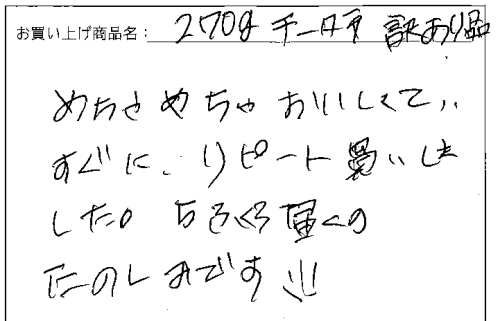 お買い上げ商品名： 270g チータラ 訳あり品
めちゃめちゃおいしくて、、
すぐに、リピート買いしま
した。 ちょくちょく届くの
たのしみです!!!